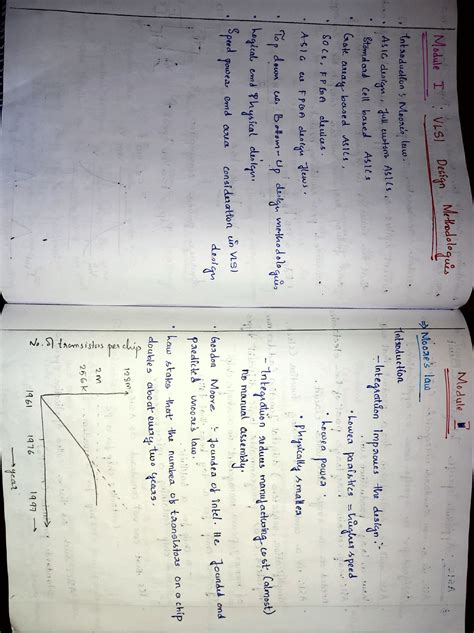 Module I : VLSI Design Methodologies
• Introduction : Moore's law.
• ASIC design, full custom ASICs,
Standard cell based ASICs
• Gate array-based ASICs,
SOCs, FPGA devices.
• ASIC vs FPGA design flows.
• Top down vs Bottom-Up design methodologies
• Logical and Physical design.
• Speed power and area consideration in VLSI
design
Module I
⇒) Moore's law
Introduction
- Integration improves the design :-
• Lower parasitics = higher speed
• Lower power.
• Physically smaller
- Integration reduces manufacturing cost (almost)
no manual assembly.
• Gordon Moore :- founder of intel. He founded and
predicted moore's law.
• Law states that the number of transistors on a chip
doubles about every two years.
No. of transistors per chip
128m
2m
256K
1961
1976
1997
year